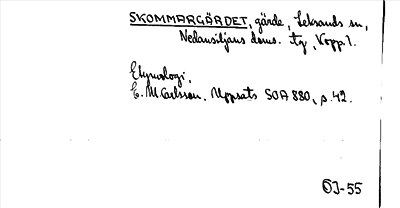 SKOMMARGÄRDET, gärde, Leksands sn,
Nedansiljans doms. tg, Kopp. l.
Etymologi,
E. M. Carlsson, Uppsats SOA 880, s. 42.
OJ-55